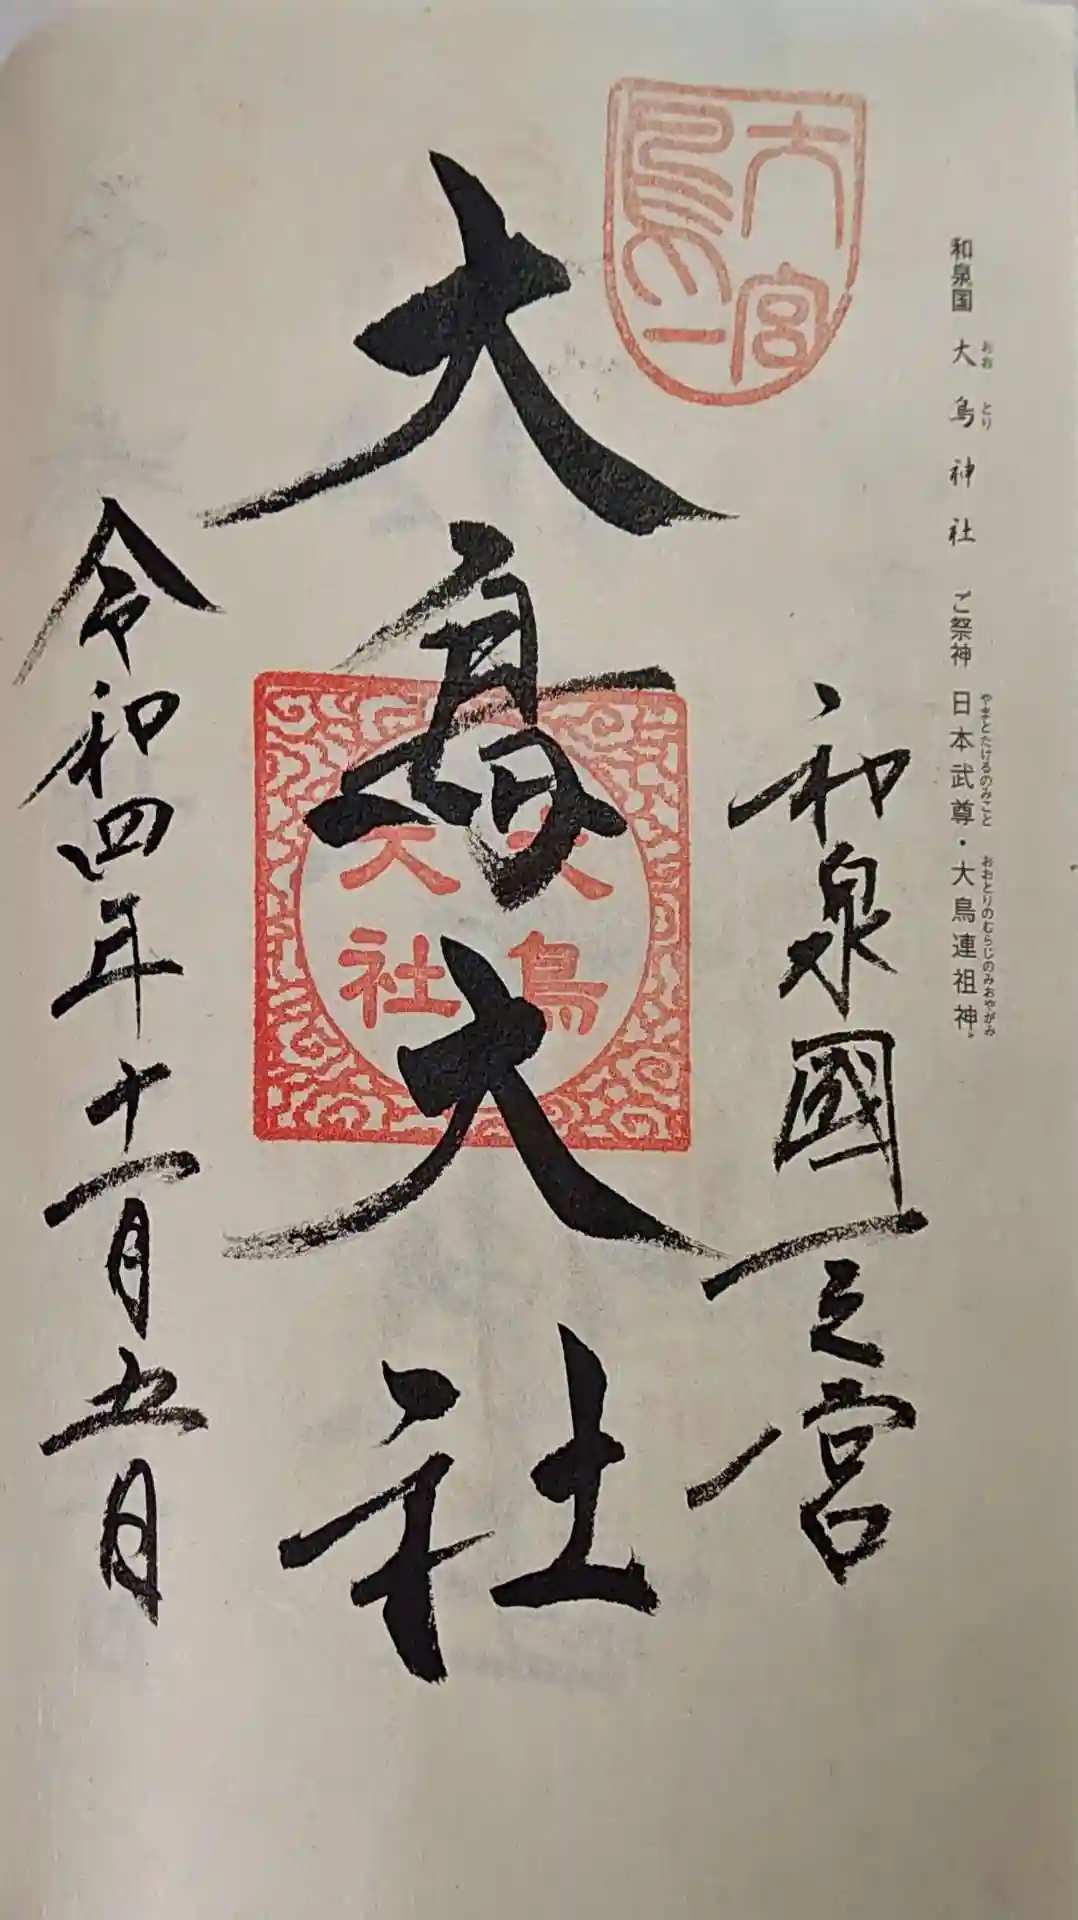 和泉国 大鳥神社 ご祭神 日本武尊・大鳥連祖神。
おお とり やまとたけるのみこと おおとりのむらじのみおやがみ
大鳥一宮
和泉國一之宮
大鳥大社
大鳥大社
令和四年十一月五日